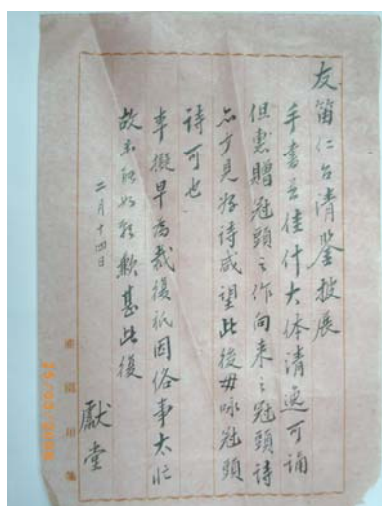 友笛仁台清鉴披展
手書並佳什大体清逸可誦
但惠贈冠頭之作向来之冠頭詩
亦少見好诗咸望此後毋咏冠頭
诗可也
本擬早為裁復祇因俗事太忙
故未能如願歉甚此復
獻堂
二月十四日
用箋